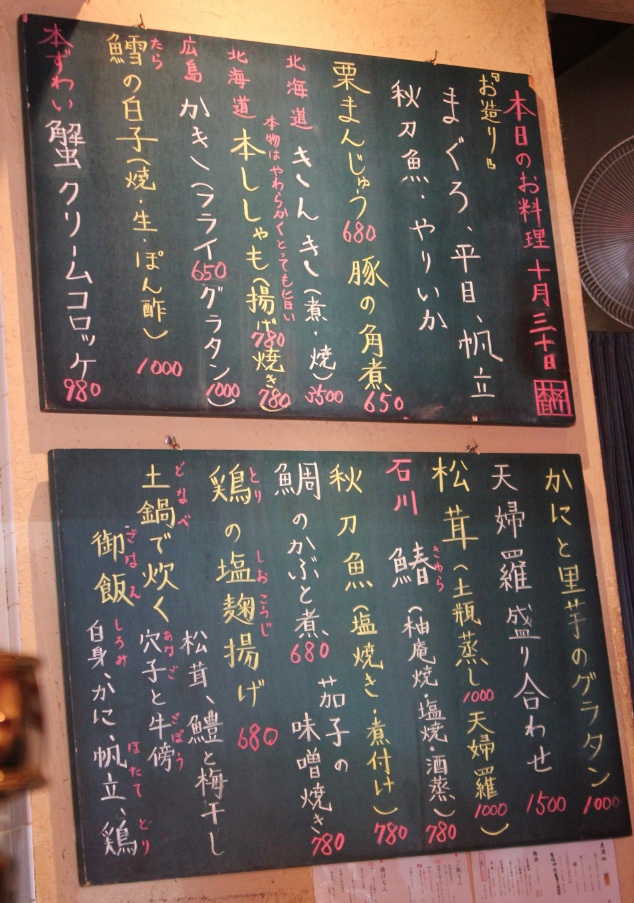 本日のお料理 十月三十日
『お造り』
まぐろ、平目、帆立
秋刀魚・やりいか
栗まんじゅう 680
豚の角煮 650
北海道 きんき(煮・焼) 3500
本物はやわらかくとっても旨い
北海道 本ししゃも(揚げ 780 焼き 780)
広島 かき(フライ 650 グラタン 1000)
鱈の白子(焼・生・ぽん酢) 1000
たら
本ずわい蟹クリームコロッケ 980
かにと里芋のグラタン 1000
天婦羅盛り合わせ 1500
松茸(土瓶蒸し 1000 天婦羅 1000)
石川 鰆(柚庵焼・塩焼・酒蒸) 780
さわら
秋刀魚(塩焼き・煮付け) 780
鯛のかぶと煮 680
茄子の味噌焼き 780
鶏の塩麹揚げ 680
とり しおこうじ
土鍋で炊く御飯
どなべ ごはん
松茸、鱧と梅干し
穴子と牛傍
あなご ごぼう
白身、かに、帆立、鶏
しろみ ほたて とり